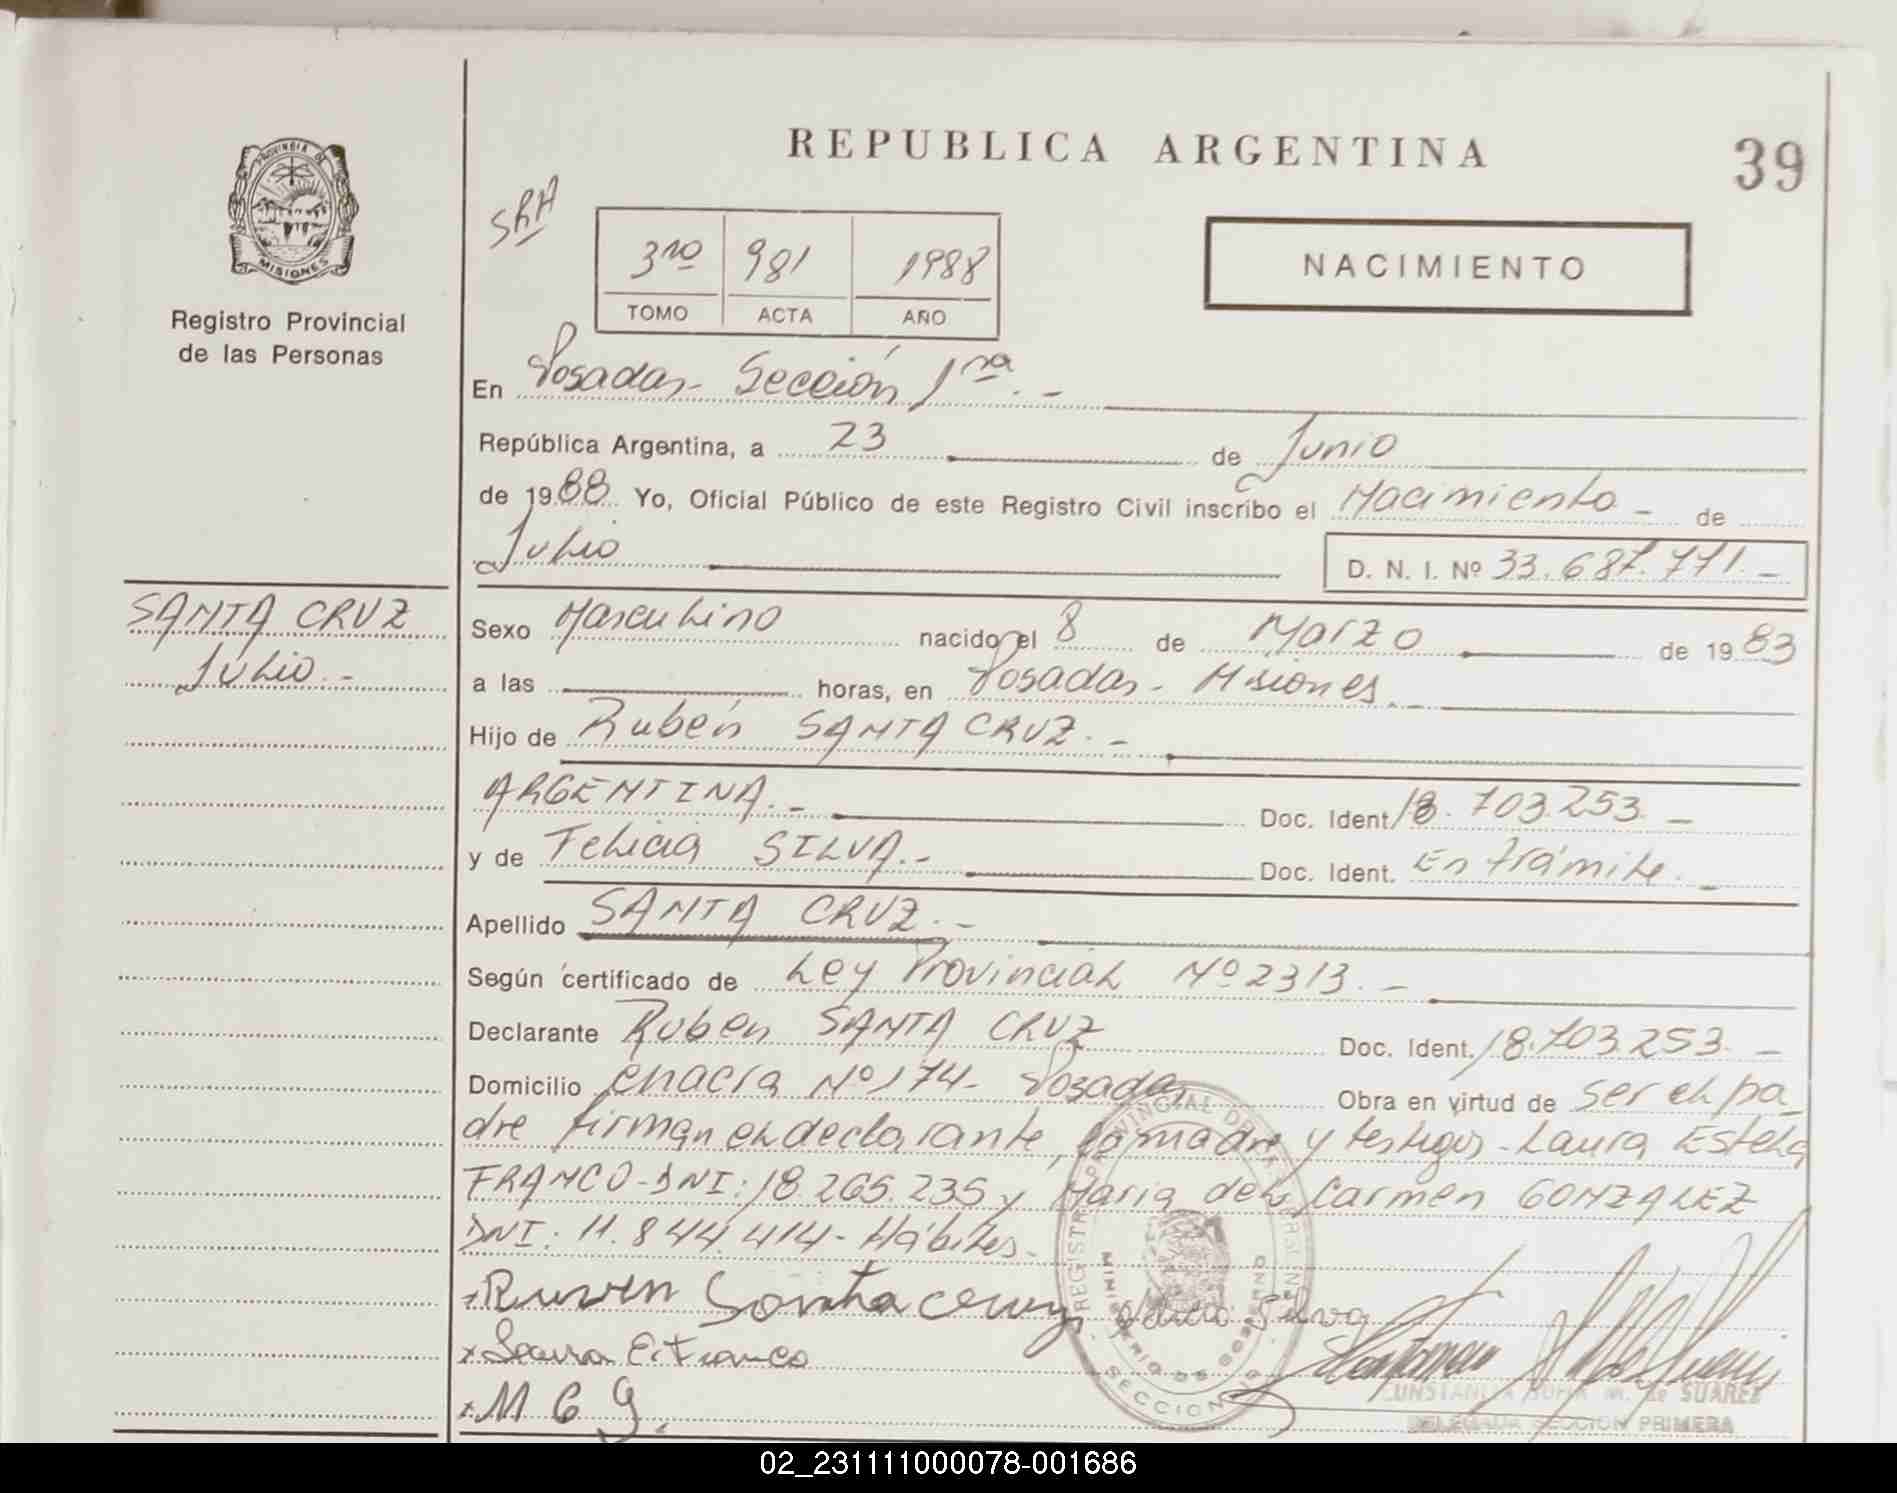 REPUBLICA ARGENTINA
39
PROVINCIA DE
MISIONES
Registro Provincial
de las Personas
3ro 981 1988
TOMO ACTA AÑO
NACIMIENTO
En Posadas - Sección 1ra. -
República Argentina, a 23 de Junio
de 1988 Yo, Oficial Público de este Registro Civil inscribo el Nacimiento - de
Julio
D. N. I. Nº 33.687.771. -
SANTA CRUZ
Julio. -
Sexo Masculino nacido el 8 de Marzo de 1983
a las horas, en Posadas - Misiones. -
Hijo de Rubén SANTA CRUZ. -
ARGENTINA. - Doc. Ident. 18.703.253. -
y de Felicia SILVA. - Doc. Ident. En trámite. -
Apellido SANTA CRUZ. -
Según certificado de Ley Provincial Nº 2313. -
Declarante Ruben SANTA CRUZ Doc. Ident. 18.703.253. -
Domicilio Chacra Nº 174 - Posadas Obra en virtud de ser el pa-
dre firman el declarante, la madre y testigos - Laura Estela
FRANCO - DNI: 18.265.235 y Maria del Carmen GONZALEZ
DNI: 11.844.414 - Hábiles. -
x Ruven Santa Cruz Silva
x Laura E. Franco
x M C G.
MINISTERIO DE GOBIERNO
SECCION
M. de SUAREZ
DELEGADA SECCION PRIMERA
02_231111000078-001686